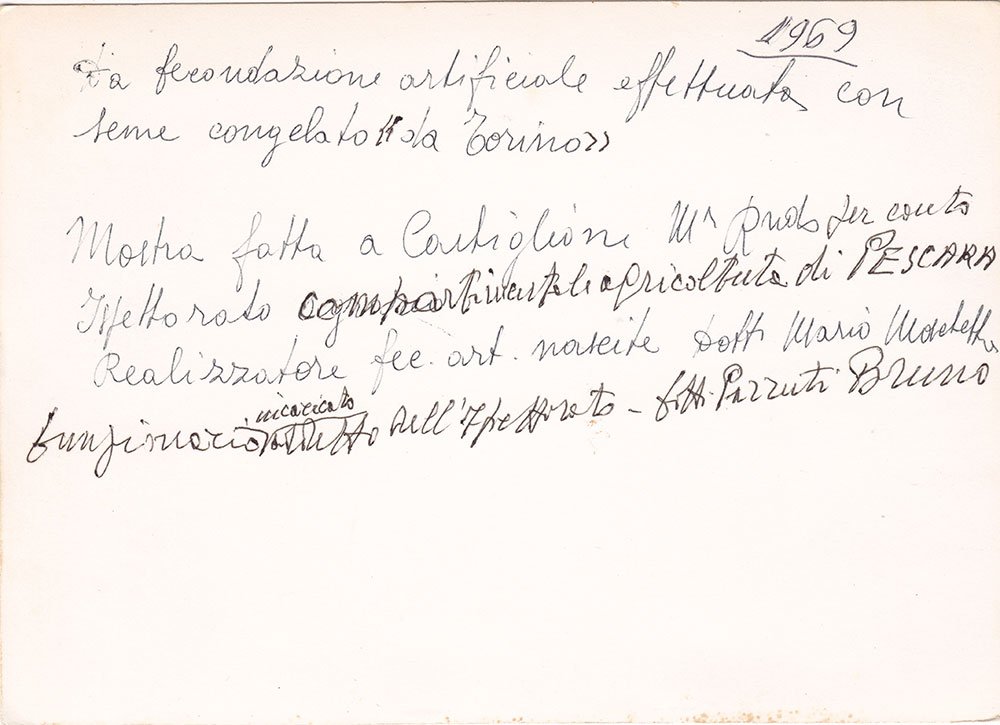 1969
Da fecondazione artificiale effettuata con
seme congelato "da Torino"
Mostra fatta a Castiglione Mr per conto
Ispettorato compartimentale agricoltura di PESCARA
Realizzatore fec. art. nascite Dott. Mario
incaricato
funzionario dell'Ispettorato - Parruti Bruno